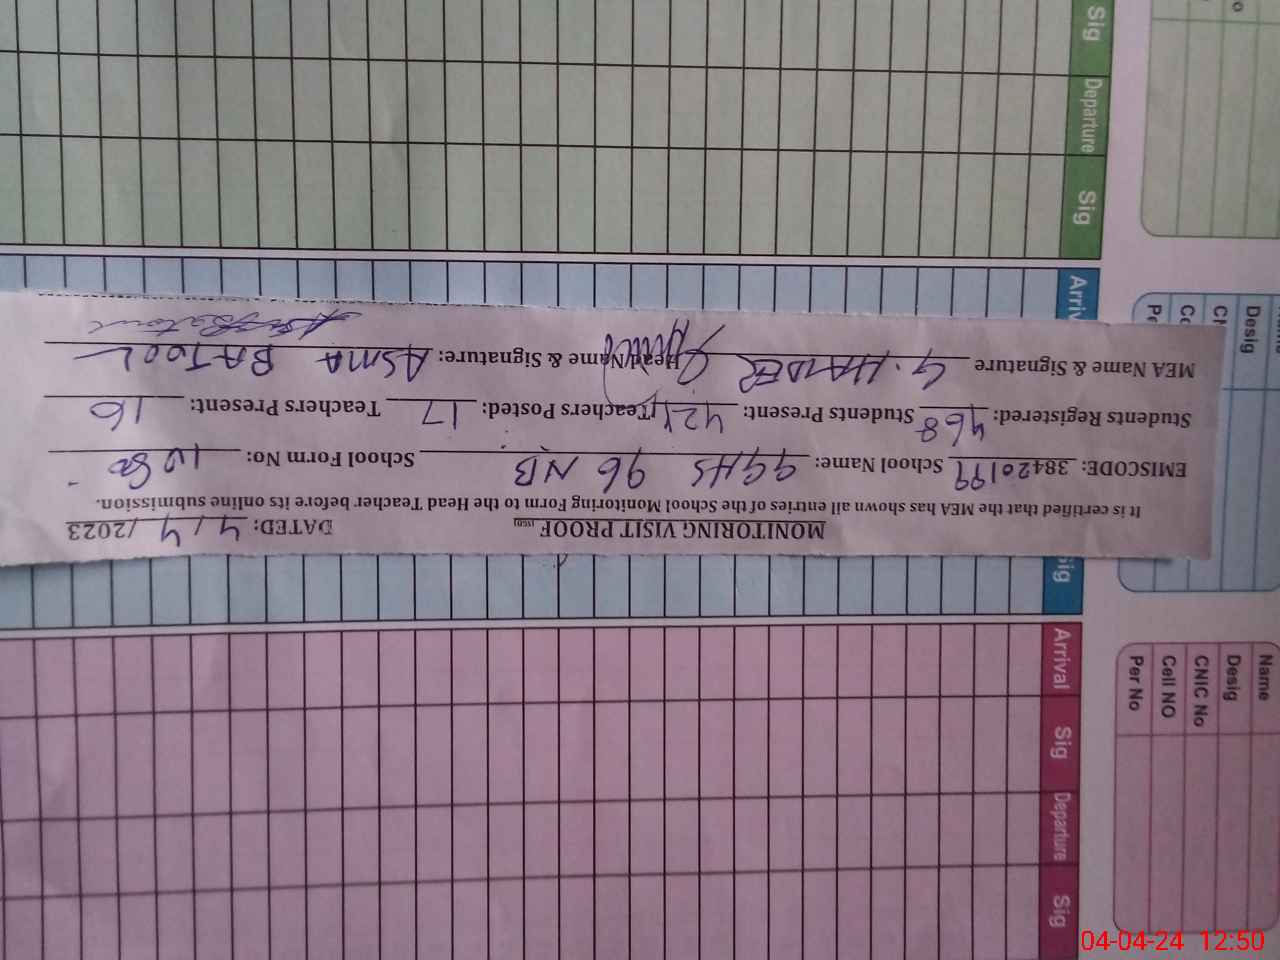 MONITORING VISIT PROOF DATED: 4/4/2023
It is certified that the MEA has shown all entries of the School Monitoring Form to the Head Teacher before its online submission.
EMISCODE: 38420199 School Name: GGHS 96 NB School Form No:
Students Registered: 468 Students Present: 421 Teachers Posted: 17 Teachers Present: 16
MEA Name & Signature G. HAIDER Head Name & Signature: ASMA BATOOL
Sig
Departure
Sig
Desig
Sig
Arrival
Sig
Departure
Sig
Name
Desig
CNIC No
Cell NO
Per No
04-04-24 12:50